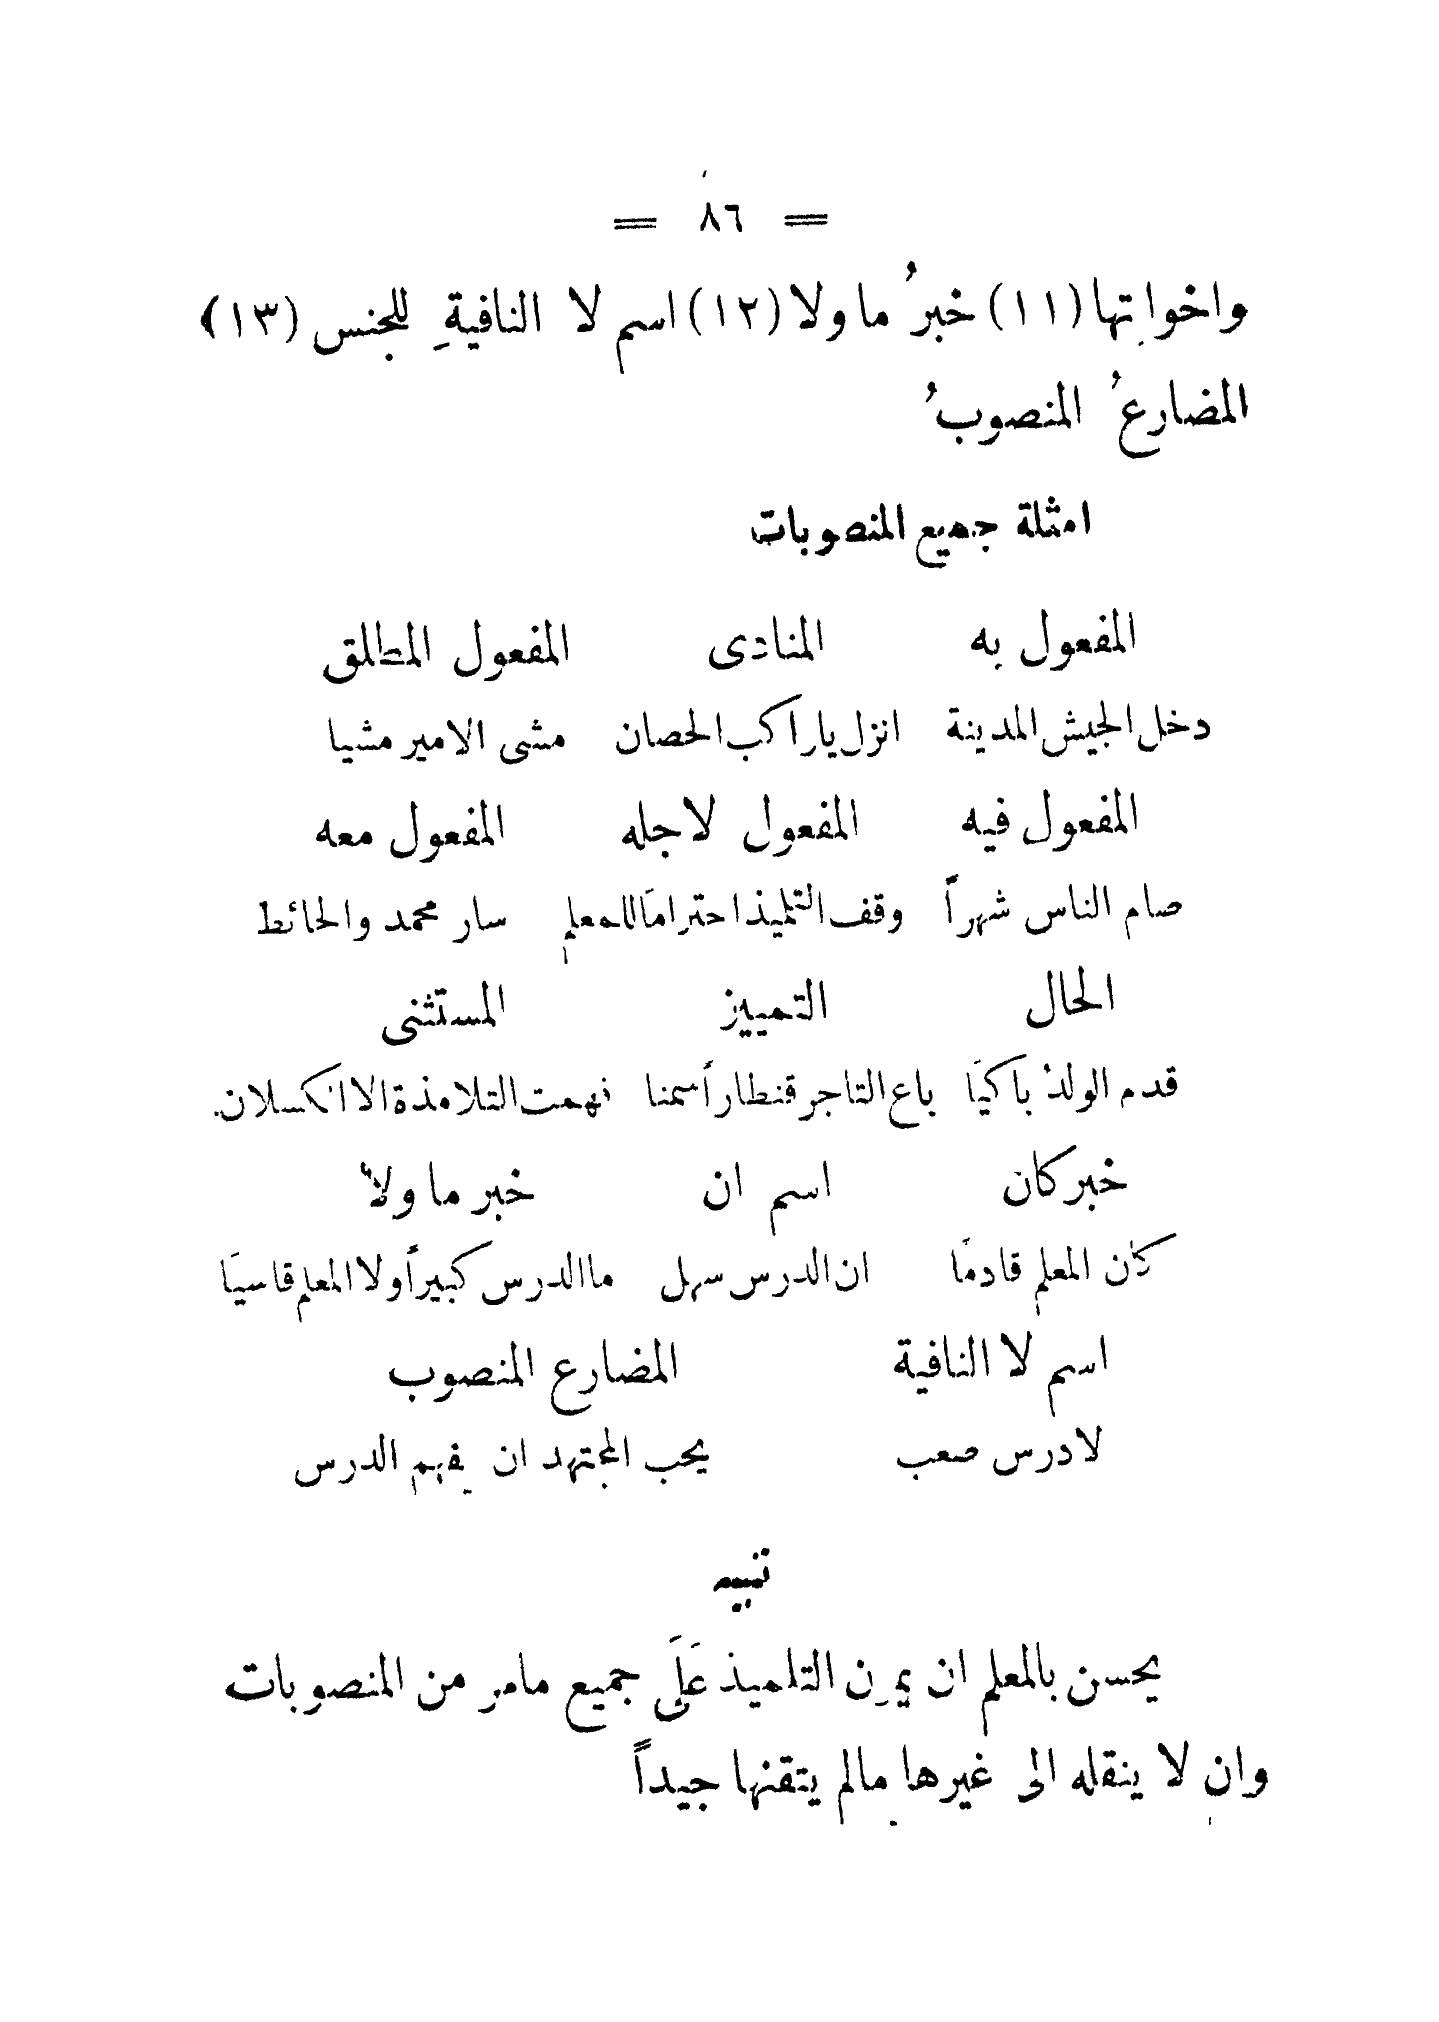 = ٨٦ =
واخواتها (١١) خبرُ ما ولا (١٢) اسم لا النافيةِ للجنس (١٣)
المضارعُ المنصوبُ
امثلة جميع المنصوبات
المفعول به المنادى المفعول المطلق
دخل الجيش المدينة انزل يا راكب الحصان مشى الامير مشيا
المفعول فيه المفعول لاجله المفعول معه
صام الناس شهراً وقف التلميذ احتراماً للمعلم سار محمد والحائط
الحال التمييز المستثنى
قدم الولدُ باكيًا باع التاجر قنطاراً سمنا فهمت التلامذة الا الكسلان
خبر كان اسم ان خبر ما ولا
كان المعلم قادمًا ان الدرس سهل ما الدرس كبيراً ولا المعلم قاسيًا
اسم لا النافية المضارع المنصوب
لا درس صعب يحب المجتهد ان يفهم الدرس
تنبيه
يحسن بالمعلم ان يمرن التلميذ عَلَى جميع ما مر من المنصوبات
وان لا ينقله الى غيرها مالم يتقنها جيداً